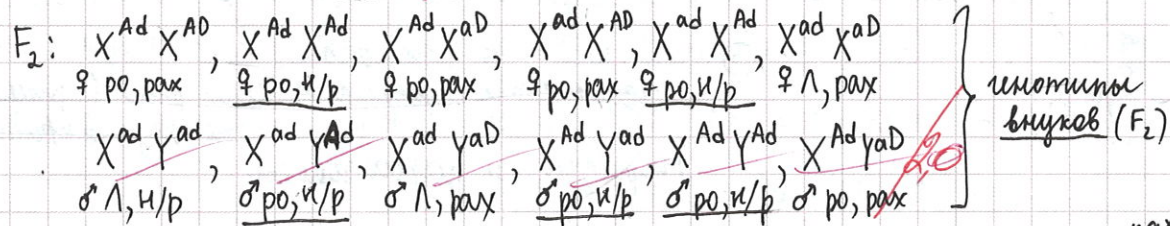 F₂: X^Ad X^AD, X^Ad X^Ad, X^Ad X^aD, X^ad X^AD, X^ad X^Ad, X^ad X^aD
♀ ро, рах ♀ ро, н/р ♀ ро, рах ♀ ро, рах ♀ ро, н/р ♀ Л, рах
X^ad Y^ad, X^ad Y^Ad, X^ad Y^aD, X^Ad Y^ad, X^Ad Y^Ad, X^Ad Y^aD
♂ Л, н/р ♂ ро, н/р ♂ Л, рах ♂ ро, н/р ♂ ро, н/р ♂ ро, рах
генотипы
внуков (F₂)